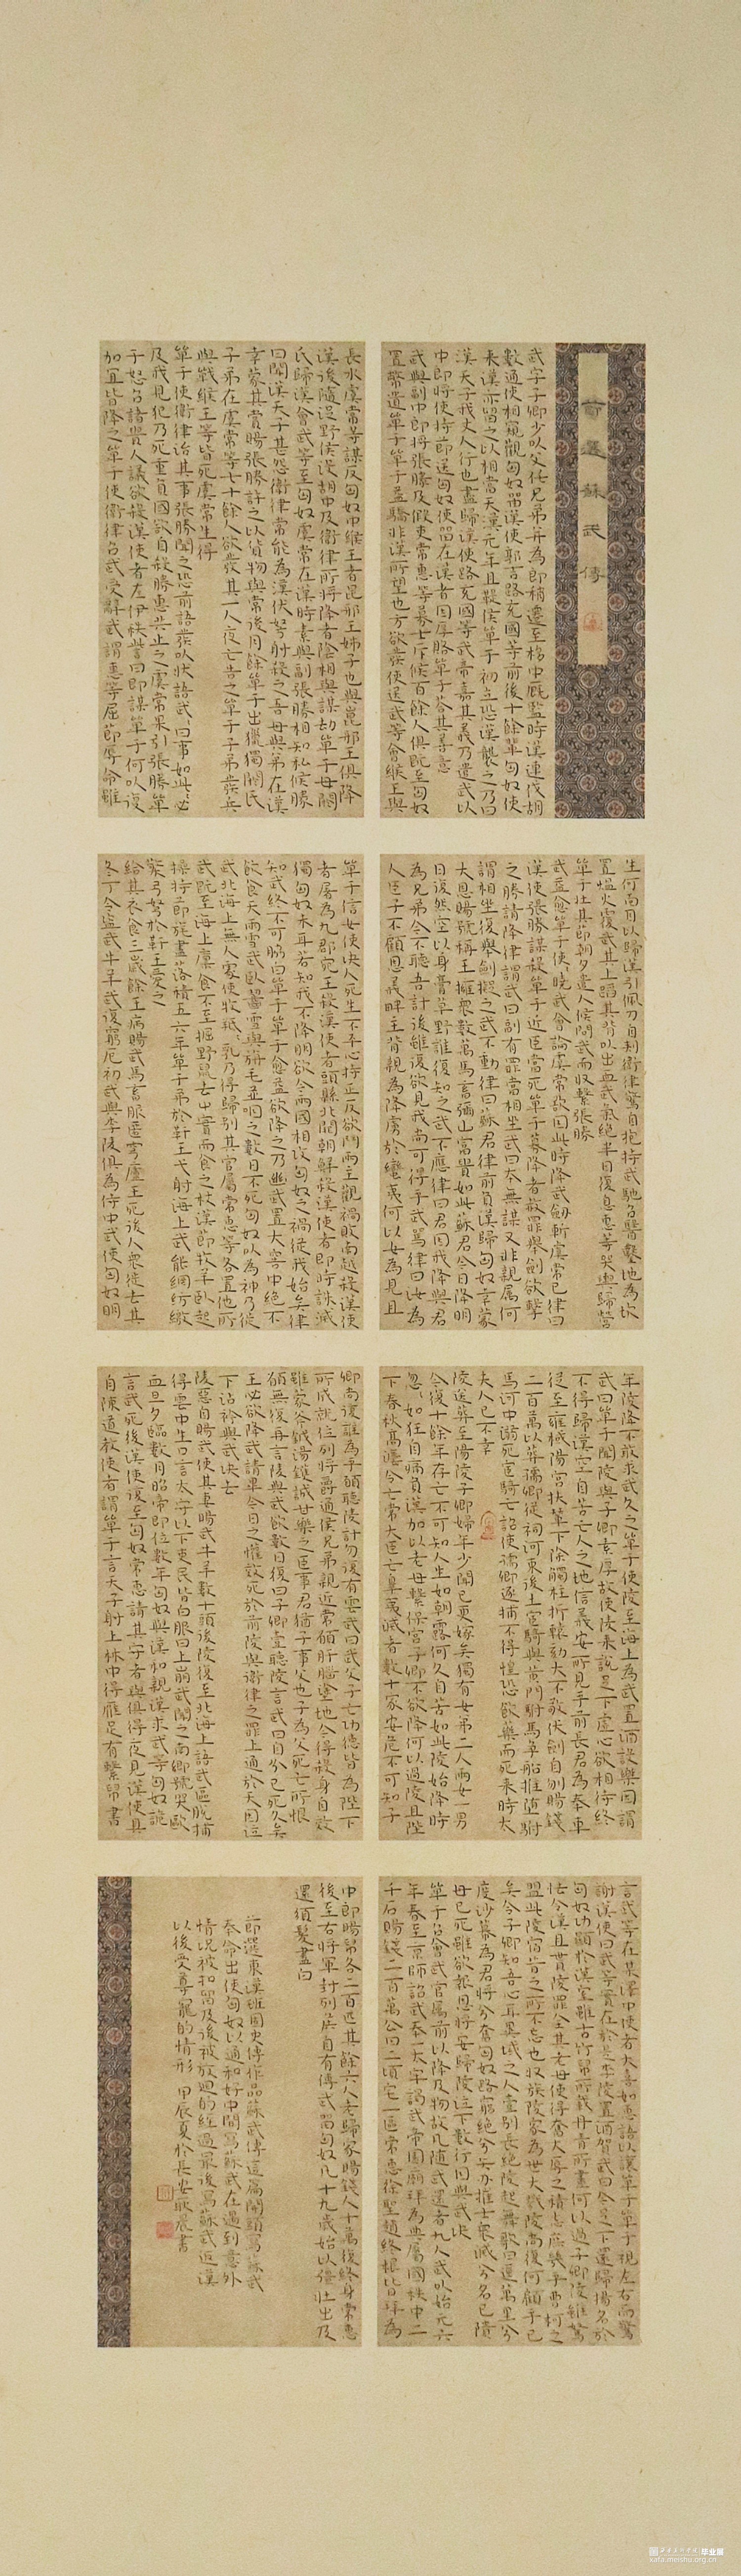 節選蘇武傳
武字子卿少以父任兄弟并為郎稍遷至栘中厩監時漢連伐胡
數通使相窺觀匈奴留漢使郭吉路充國等前後十餘輩匈奴使
來漢亦留之以相當天漢元年且鞮侯單于初立恐漢襲之乃曰
漢天子我丈人行也盡歸漢使路充國等武帝嘉其義乃遣武以
中郎將使持節送匈奴使留在漢者因厚賂單于荅其善意
武與副中郎將張勝及假吏常惠等募士斥候百餘人俱既至匈奴
置幣遺單于單于益驕非漢所望也方欲發使送武等會緱王與
長水虞常等謀反匈奴中緱王者昆邪王姊子也與昆邪王俱降
漢後隨浞野侯沒胡中及衛律所將降者陰相與謀劫單于母閼
氏歸漢會武等至匈奴虞常在漢時素與副張勝相知私候勝
曰聞漢天子甚怨衛律常能為漢伏弩射殺之吾母與弟在漢
幸蒙其賞賜張勝許之以貨物與常後月餘單于出獵獨閼氏
子弟在虞常等七十餘人欲發其一人夜亡告之單于子弟發兵
與戰緱王等皆死虞常生得
單于使衛律治其事張勝聞之恐前語發以狀語武武曰事如此必
及我見犯乃死重負國欲自殺勝惠共止之虞常果引張勝單
于怒召諸貴人議欲殺漢使者左伊秩訾曰即謀單于何以復
加宜皆降之單于使衛律召武受辭武謂惠等屈節辱命雖
生何面目以歸漢引佩刀自刺衛律驚自抱持武馳召毉鑿地為坎
置熅火覆武其上蹈其背以出血武氣絕半日復息惠等哭輿歸營
單于壯其節朝夕遣人候問武而收繫張勝
武益愈單于使使曉武會論虞常欲因此時降武劍斬虞常已律曰
漢使張勝謀殺單于近臣當死單于募降者赦罪舉劍欲擊
之勝請降律謂武曰副有罪當相坐武曰本無謀又非親屬何
謂相坐復舉劍擬之武不動律曰蘇君律前負漢歸匈奴幸蒙
大恩賜號稱王擁眾數萬馬畜彌山富貴如此蘇君今日降明
日復然空以身膏草野誰復知之武不應律曰君因我降與君
為兄弟今不聽吾計後雖復欲見我尚可得乎武罵律曰汝為
人臣子不顧恩義畔主背親為降虜於蠻夷何以女為見且
單于信女使決人死生不平心持正反欲鬥兩主觀禍敗南越殺漢使
者屠為九郡宛王殺漢使者頭縣北闕朝鮮殺漢使者即時誅滅
獨匈奴未耳若知我不降明欲令兩國相攻匈奴之禍從我始矣律
知武終不可脅白單于單于愈益欲降之乃幽武置大窖中絕不
飲食天雨雪武臥齧雪與旃毛並咽之數日不死匈奴以為神乃徙
武北海上無人處使牧羝羝乳乃得歸別其官屬常惠等各置他所
武既至海上廩食不至掘野鼠去屮實而食之杖漢節牧羊臥起
操持節旄盡落積五六年單于弟於靬王弋射海上武能網紡繳
檠弓弩於靬王愛之
給其衣食三歲餘王病賜武馬畜服匿穹廬王死後人眾徙去其
冬丁令盜武牛羊武復窮厄初武與李陵俱為侍中武使匈奴明
年陵降不敢求武久之單于使陵至海上為武置酒設樂因謂
武曰單于聞陵與子卿素厚故使陵來說足下虛心欲相待終
不得歸漢空自苦亡人之地信義安所見乎前長君為奉車
從至雍棫陽宮扶輦下除觸柱折轅劾大不敬伏劍自刎賜錢
二百萬以葬孺卿從祠河東后土宦騎與黃門駙馬爭船推墮駙
馬河中溺死宦騎亡詔使孺卿逐捕不得惶恐飲藥而死來時大
夫人已不幸
陵送葬至陽陵子卿婦年少聞已更嫁矣獨有女弟二人兩女一男
今復十餘年存亡不可知人生如朝露何久自苦如此陵始降時
忽忽如狂自痛負漢加以老母繫保宮子卿不欲降何以過陵且陛
下春秋高法令亡常大臣亡罪夷滅者數十家安危不可知子
卿尚復誰為乎願聽陵計勿復有雲武曰武父子亡功德皆為陛下
所成就位列將爵通侯兄弟親近常願肝腦塗地今得殺身自效
雖蒙斧鉞湯鑊誠甘樂之臣事君猶子事父也子為父死亡所恨
願無復再言陵與武飲數日復曰子卿壹聽陵言武曰自分已死久矣
王必欲降武請畢今日之驩效死於前陵與衛律之罪上通於天因泣
下沾衿與武決去
陵惡自賜武使其妻賜武牛羊數十頭後陵復至北海上語武區脫捕
得雲中生口言太守以下吏民皆白服曰上崩武聞之南鄉號哭歐
血旦夕臨數月昭帝即位數年匈奴與漢和親漢求武等匈奴詭
言武死後漢使復至匈奴常惠請其守者與俱得夜見漢使具
自陳道教使者謂單于言天子射上林中得雁足有繫帛書
言武等在某澤中使者大喜如惠語以讓單于單于視左右而驚
謝漢使曰武等實在於是李陵置酒賀武曰今足下還歸揚名於
匈奴功顯於漢室雖古竹帛所載丹青所畫何以過子卿陵雖駑
怯令漢且貰陵罪全其老母使得奮大辱之積志庶幾乎曹柯之
盟此陵宿昔之所不忘也收族陵家為世大戮陵尚復何顧乎已
矣令子卿知吾心耳異域之人壹別長絕陵起舞歌曰徑萬里兮
度沙幕為君將兮奮匈奴路窮絕兮矢刃摧士眾滅兮名已隤
母已死雖欲報恩將安歸陵泣下數行因與武決
單于召會武官屬前以降及物故凡隨武還者九人武以始元六
年春至京師詔武奉一太牢謁武帝園廟拜為典屬國秩中二
千石賜錢二百萬公田二頃宅一區常惠徐聖趙終根皆拜為
中郎賜帛各二百匹其餘六人老歸家賜錢人十萬復終身常惠
後至右將軍封列侯自有傳武留匈奴凡十九歲始以彊壯出及
還須髮盡白
節選東漢班固史傳作品蘇武傳這篇開頭寫蘇武
奉命出使匈奴以通和好中間寫蘇武在遇到意外
情況被扣留及後被放迴的經過最後寫蘇武返漢
以後受尊寵的情形 甲辰夏於長安耿晨書
毕业展
xafa.meishu.org.cn